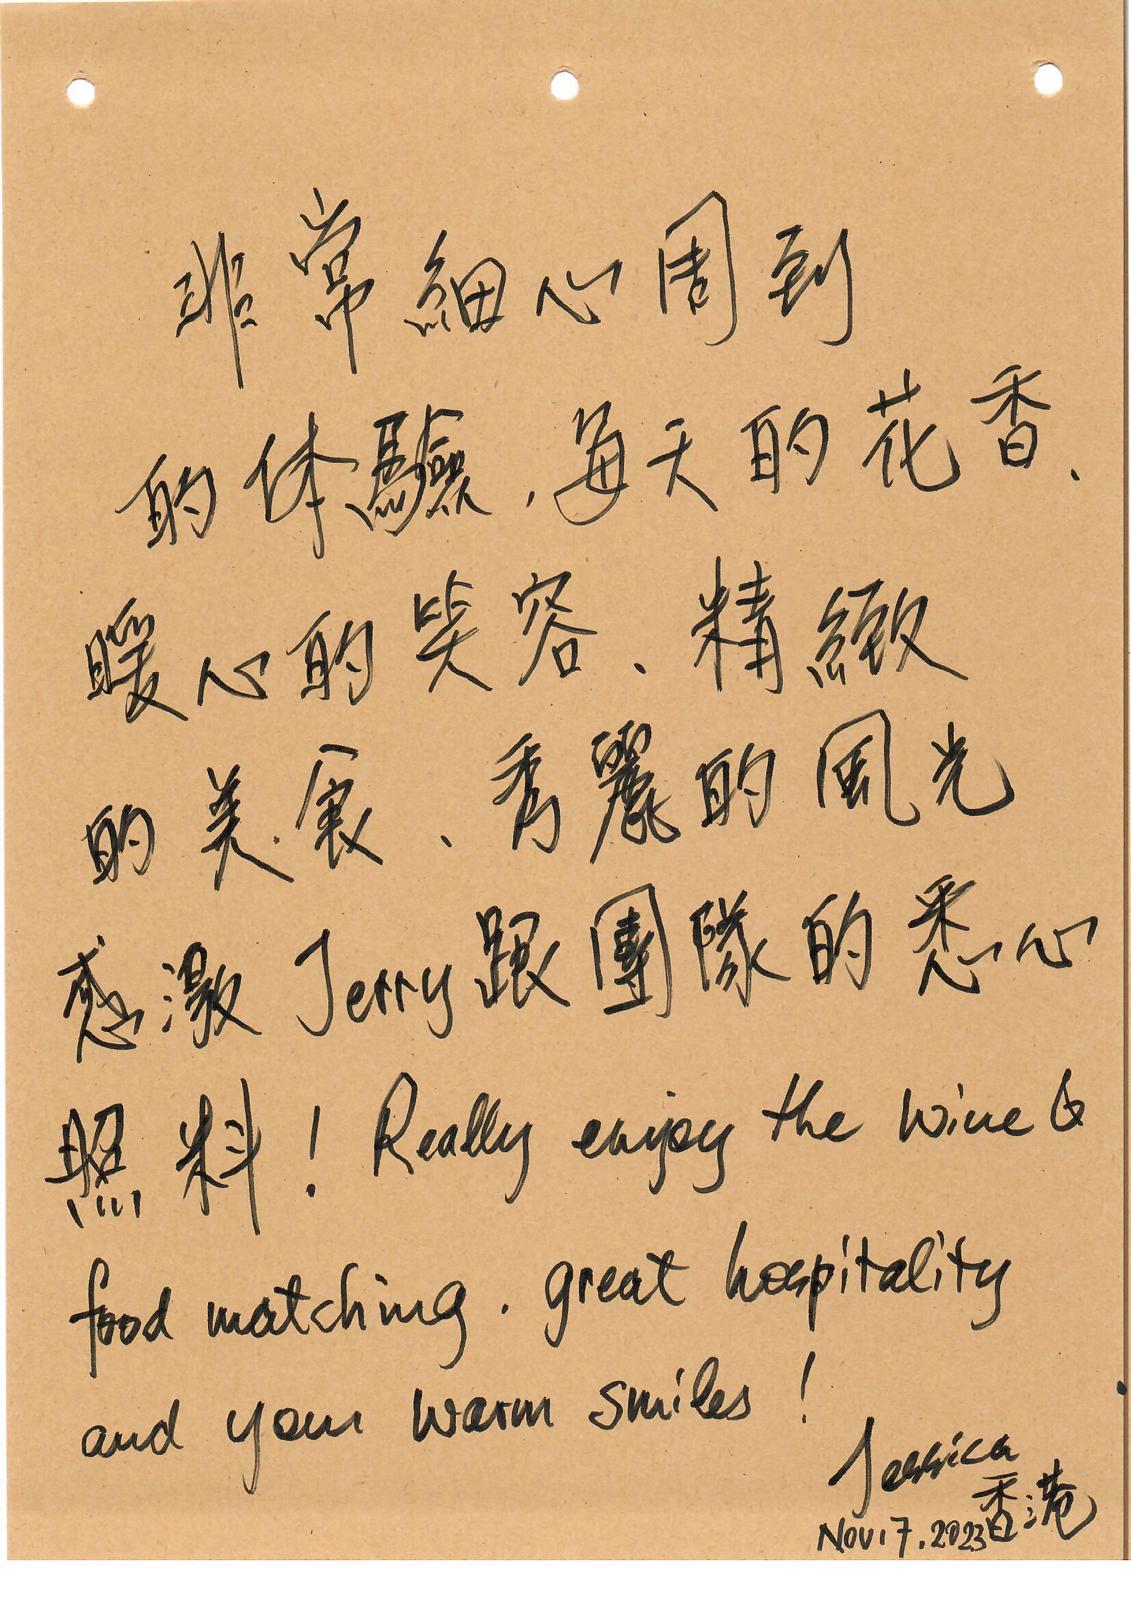 非常細心周到
的体驗，每天的花香、
暖心的笑容、精緻
的美食、秀麗的風光
感激Jerry跟團隊的悉心
照料！Really enjoy the wine &
food matching. great hospitality
and your warm smiles!
Jessica
香港
Nov.7.2023